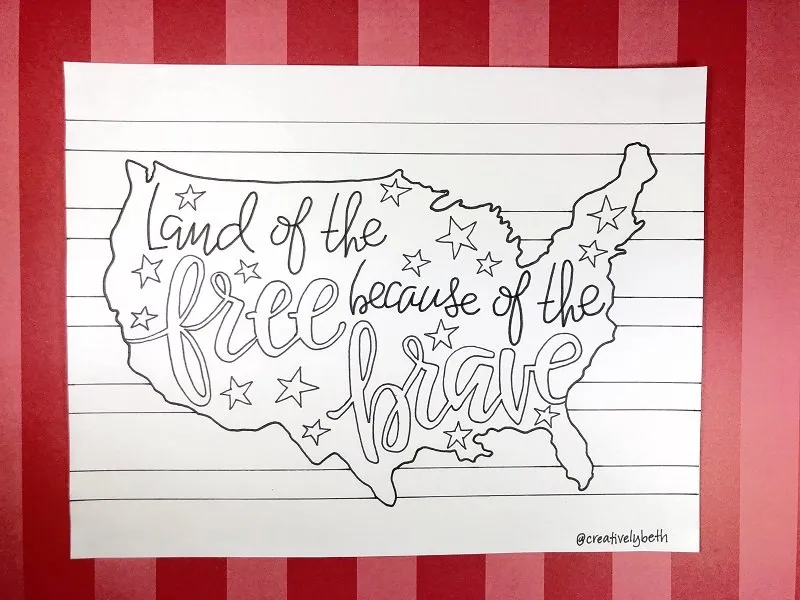 Land of the
free because of the
brave
@creativelybeth